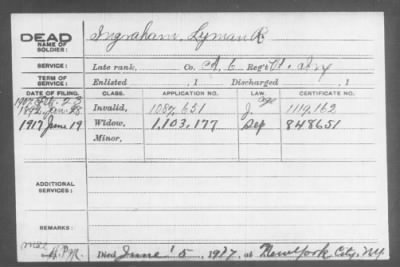 DEAD
NAME OF SOLDIER: Ingraham, Lyman R.
SERVICE: Late rank, Co. Reg't Vt.
TERM OF SERVICE: Enlisted , 1 Discharged , 1
DATE OF FILING. CLASS. APPLICATION NO. LAW. CERTIFICATE NO.
1907 Feb. 23
1892 Jan. 28 Invalid, 1087,651 J age 1119,162
1917 June 19 Widow, 1,103,177 Sep 848651
Minor,
ADDITIONAL SERVICES:
REMARKS:
Died June 5, 1917, at New York City, NY